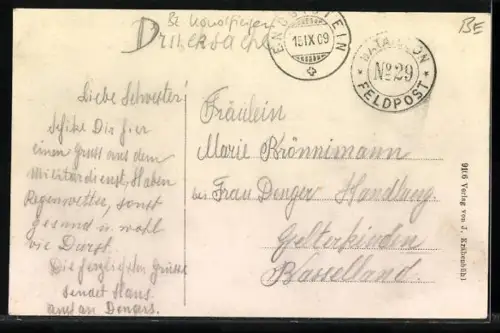 Drucksache
ENGGISTEIN
15 IX 09
BATAILLON
No 29
FELDPOST
BE
Liebe Schwester!
Schike Dir hier
einen Gruss aus dem
Militärdienst. Haben
Regenwetter, sonst
gesund u. wohl
wie Durst.
Die herzlichsten Grüsse
sendet Hans
auch an Dengers.
Fräulein
Marie Brönnimann
bei Frau Denger Handlung
Gelterkinden
Basselland.
9116 Verlag von J. Krähenbühl